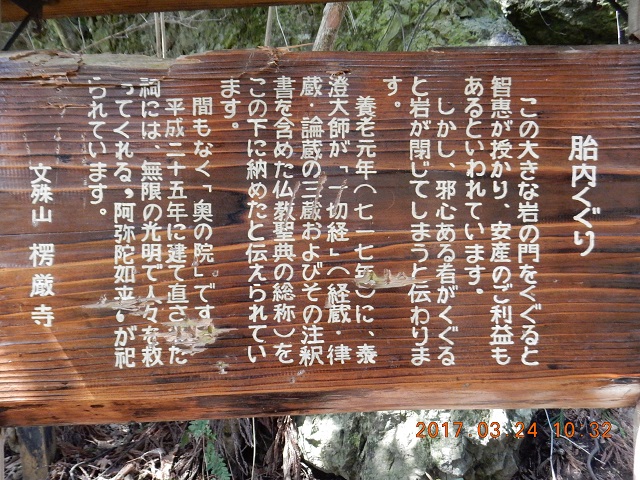 胎内くぐり
この大きな岩の門をくぐると
智恵が授かり、安産のご利益も
あるといわれています。
しかし、邪心ある者がくぐる
と岩が閉じてしまうと伝わりま
す。
養老元年(七一七年)に、泰
澄大師が「一切経」(経蔵・律
蔵・論蔵の三蔵およびその注釈
書を含めた仏教聖典の総称)を
この下に納めたと伝えられてい
ます。
間もなく「奥の院」です
平成二十五年に建て直された
祠には、無限の光明で人々を救
ってくれる〝阿弥陀如来〟が祀
られています。
文殊山 楞厳寺
2017 03 24 10:32